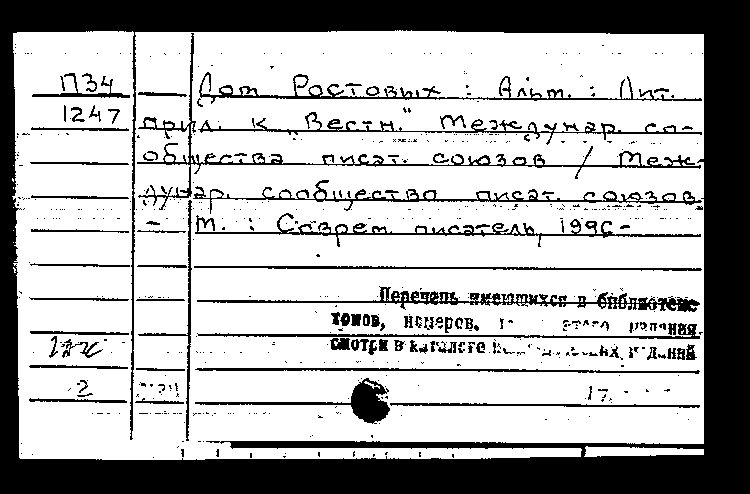 П34 Дом Ростовых : Альм. : Лит.
1247 прил. к „Вестн." Междунар. со-
общества писат. союзов / Меж-
дунар. сообщество писат. союзов.
- М. : Соврем. писатель, 1996-
Перечень имеющихся в библиотеке
томов, номеров, этого издания
смотри в каталоге изданий
2
17.